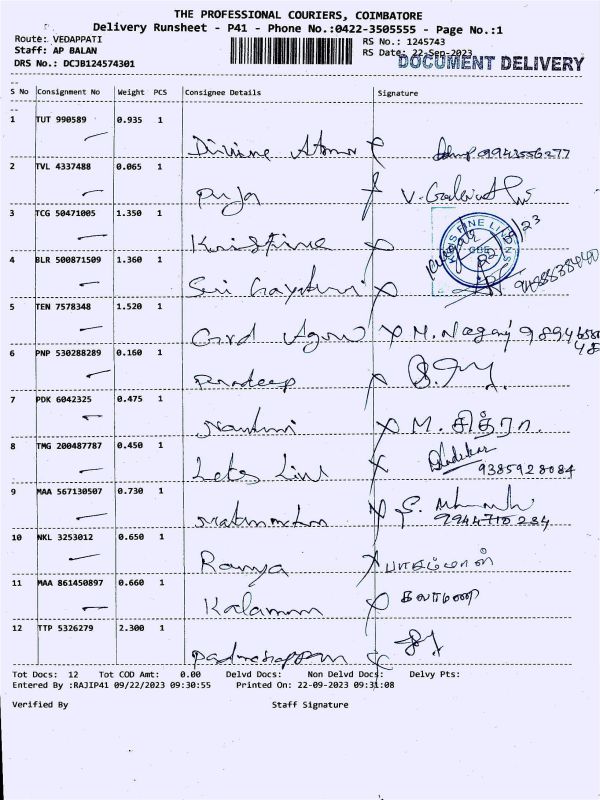 THE PROFESSIONAL COURIERS, COIMBATORE
Delivery Runsheet - P41 - Phone No.:0422-3505555 - Page No.:1
Route: VEDAPPATI
Staff: AP BALAN
DRS No.: DCJB124574301
RS No.: 1245743
RS Date: 22-Sep-2023
DOCUMENT DELIVERY
S No Consignment No Weight PCS Consignee Details Signature
1 TUT 990589 0.935 1
Divine
2 TVL 4337488 0.065 1
Puja
3 TCG 50471005 1.350 1
Kristine
FINE LINENS
CBE
4 BLR 500871509 1.360 1
Sri Gayathri
5 TEN 7578348 1.520 1
6 PNP 530288289 0.160 1
Pradeep
7 PDK 6042325 0.475 1
Nandini M. சித்ரா
8 TMG 200487787 0.450 1
9385928084
9 MAA 567130507 0.730 1
9944710234
10 NKL 3253012 0.650 1
Ramya
11 MAA 861450897 0.660 1
12 TTP 5326279 2.300 1
Tot Docs: 12 Tot COD Amt: 0.00 Delvd Docs: Non Delvd Docs: Delvy Pts:
Entered By :RAJIP41 09/22/2023 09:30:55 Printed On: 22-09-2023 09:31:08
Verified By Staff Signature